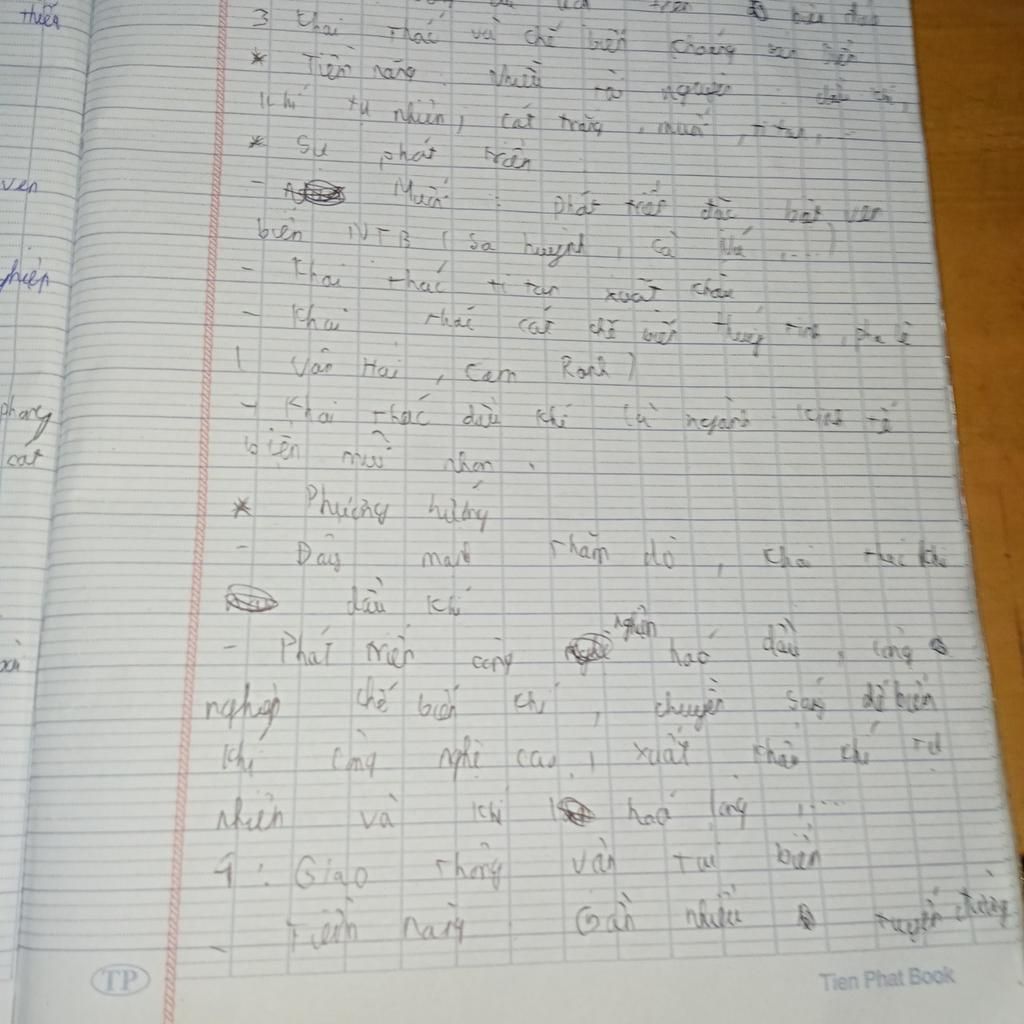 thiên
ven
nhiên
phong
cát
3 khai thác và chế biến khoáng sản biển
* Tiềm năng nhiều tài nguyên: dầu khí,
khí tự nhiên, cát trắng, muối, ti tan, ...
* Sự phát triển
- Muối: phát triển đặc biệt ven
biển NTB (Sa huỳnh, Cà Ná, ...)
- Khai thác ti tan xuất khẩu
- Khai thác cát chế biến thuỷ tinh, pha lê
( Vân Hải, Cam Ranh)
- Khai thác dầu khí là ngành kinh tế
biển mũi nhọn.
* Phương hướng
- Đẩy mạnh thăm dò, khai thác
dầu khí
- Phát triển công nghiệp hoá dầu, công
nghiệp chế biến khí, chuyển sang
khí công nghệ cao, xuất khẩu khí tự
nhiên và khí hoá lỏng, ...
4: Giao thông vận tải biển
- Tiềm năng Gần nhiều tuyến đường
TP
Tien Phat Book